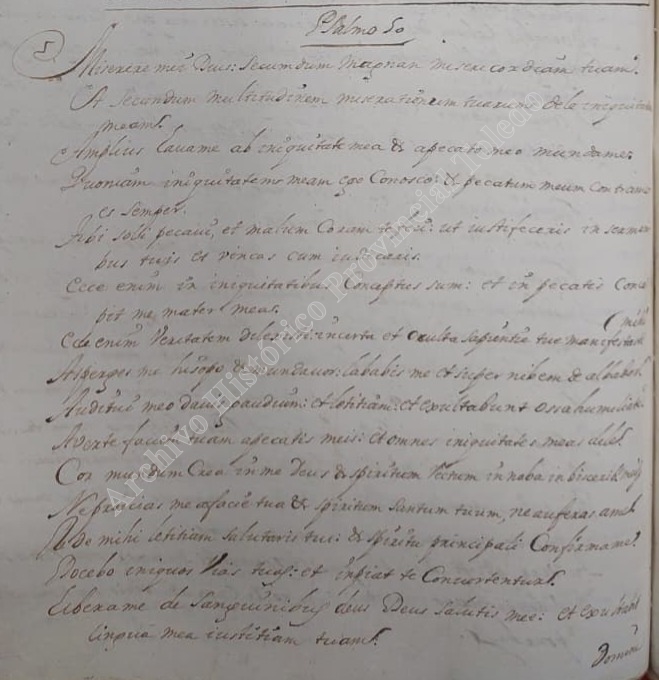 Psalmo 50
5
Miserere mei Deus: Secumdum magnan misericordiam tuam.
Et secondum multitudinem miserationem tuarum: dele iniquita
meam.
Amplius lavame ab iniquitate mea & apecato meo mundame:
Quoniam iniquitatems meam ego Conosco: & pecatum meum contrame
es semper.
tibi soli pecavi, et malum Coram te feci: ut iustificeris in sermoni
bus tuis et vincas cum iudicaris.
Ecce enim in iniquitatibus Conceptus sum: et in pecatis Conce
pit me mater mea.
mihi
Ecce enim Veritatem dilexisti: incerta et oculta sapientie tue manifestasti
Asperges me hisopo & mundavor: lababis me et super nibem de albabor.
Auditui meo davis gaudium: et letitiam: et exultabunt ossa humiliata
Averte faciem tuam apecatis meis: et omnes iniquitates meas dele.
Cor mundum Crea in me Deus & spiritum rectum innoba in bisceribus meis
Ne proicias me afacie tua & spiritum santum tuum, ne auferas ame
Redde mihi letitiam salutaris tui: & spiritu principali Confirmame.
Docebo iniquos vias tuas: et inpiat te Convertentur.
Liberame de Sanguinibus deus Deus salutis mee: et exultabit
lingua mea iustitiam tuam.
Domine
Archivo Histórico Provincial Toledo